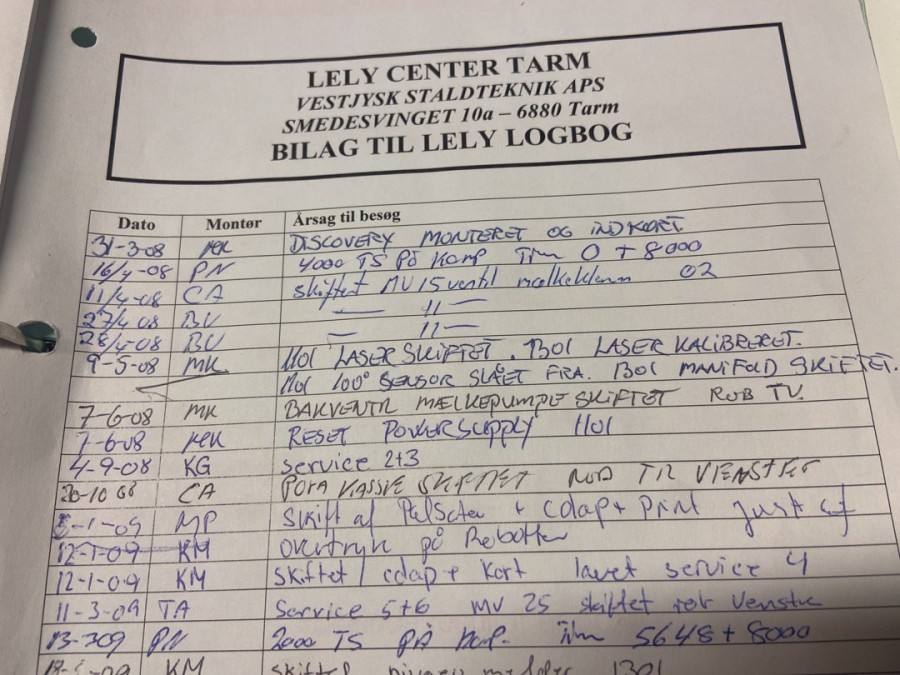 LELY CENTER TARM
VESTJYSK STALDTEKNIK APS
SMEDESVINGET 10a – 6880 Tarm
BILAG TIL LELY LOGBOG
Dato Montør Årsag til besøg
31-3-08 MK DISCOVERY MONTERET OG INDKØRT
16/4-08 PN 4000 TS På Komp Tim 0 + 8000
11/4-08 CA skiftet MV 15 ventil mælkeklemm 02
27/4 08 BV — 11 —
28/4-08 BV — 11 —
9-5-08 MK 1101 LASER SKIFTET. 1301 LASER KALIBRERET.
1101 100° SENSOR SLÅET FRA. 1301 MANIFOLD SKIFTET.
7-6-08 MK MÆLKEPUMPE SKIFTET ROB TV.
7-6-08 MK RESET POWERSUPPLY 1101
4-9-08 KG service 2+3
20-10 08 CA SKIFTET TIL VENSTRE
-1-09 MP Skift af + cdap + Print Just af
12-1-09 KM overtryk på Robotter
12-1-09 KM Skiftet cdap + kort lavet service 4
11-3-09 TA Service 5+6 MV 25 skiftet rob venstre
13-309 PN 2000 TS På Komp. Tim 5648 + 8000
-09 KM skiftet 1301